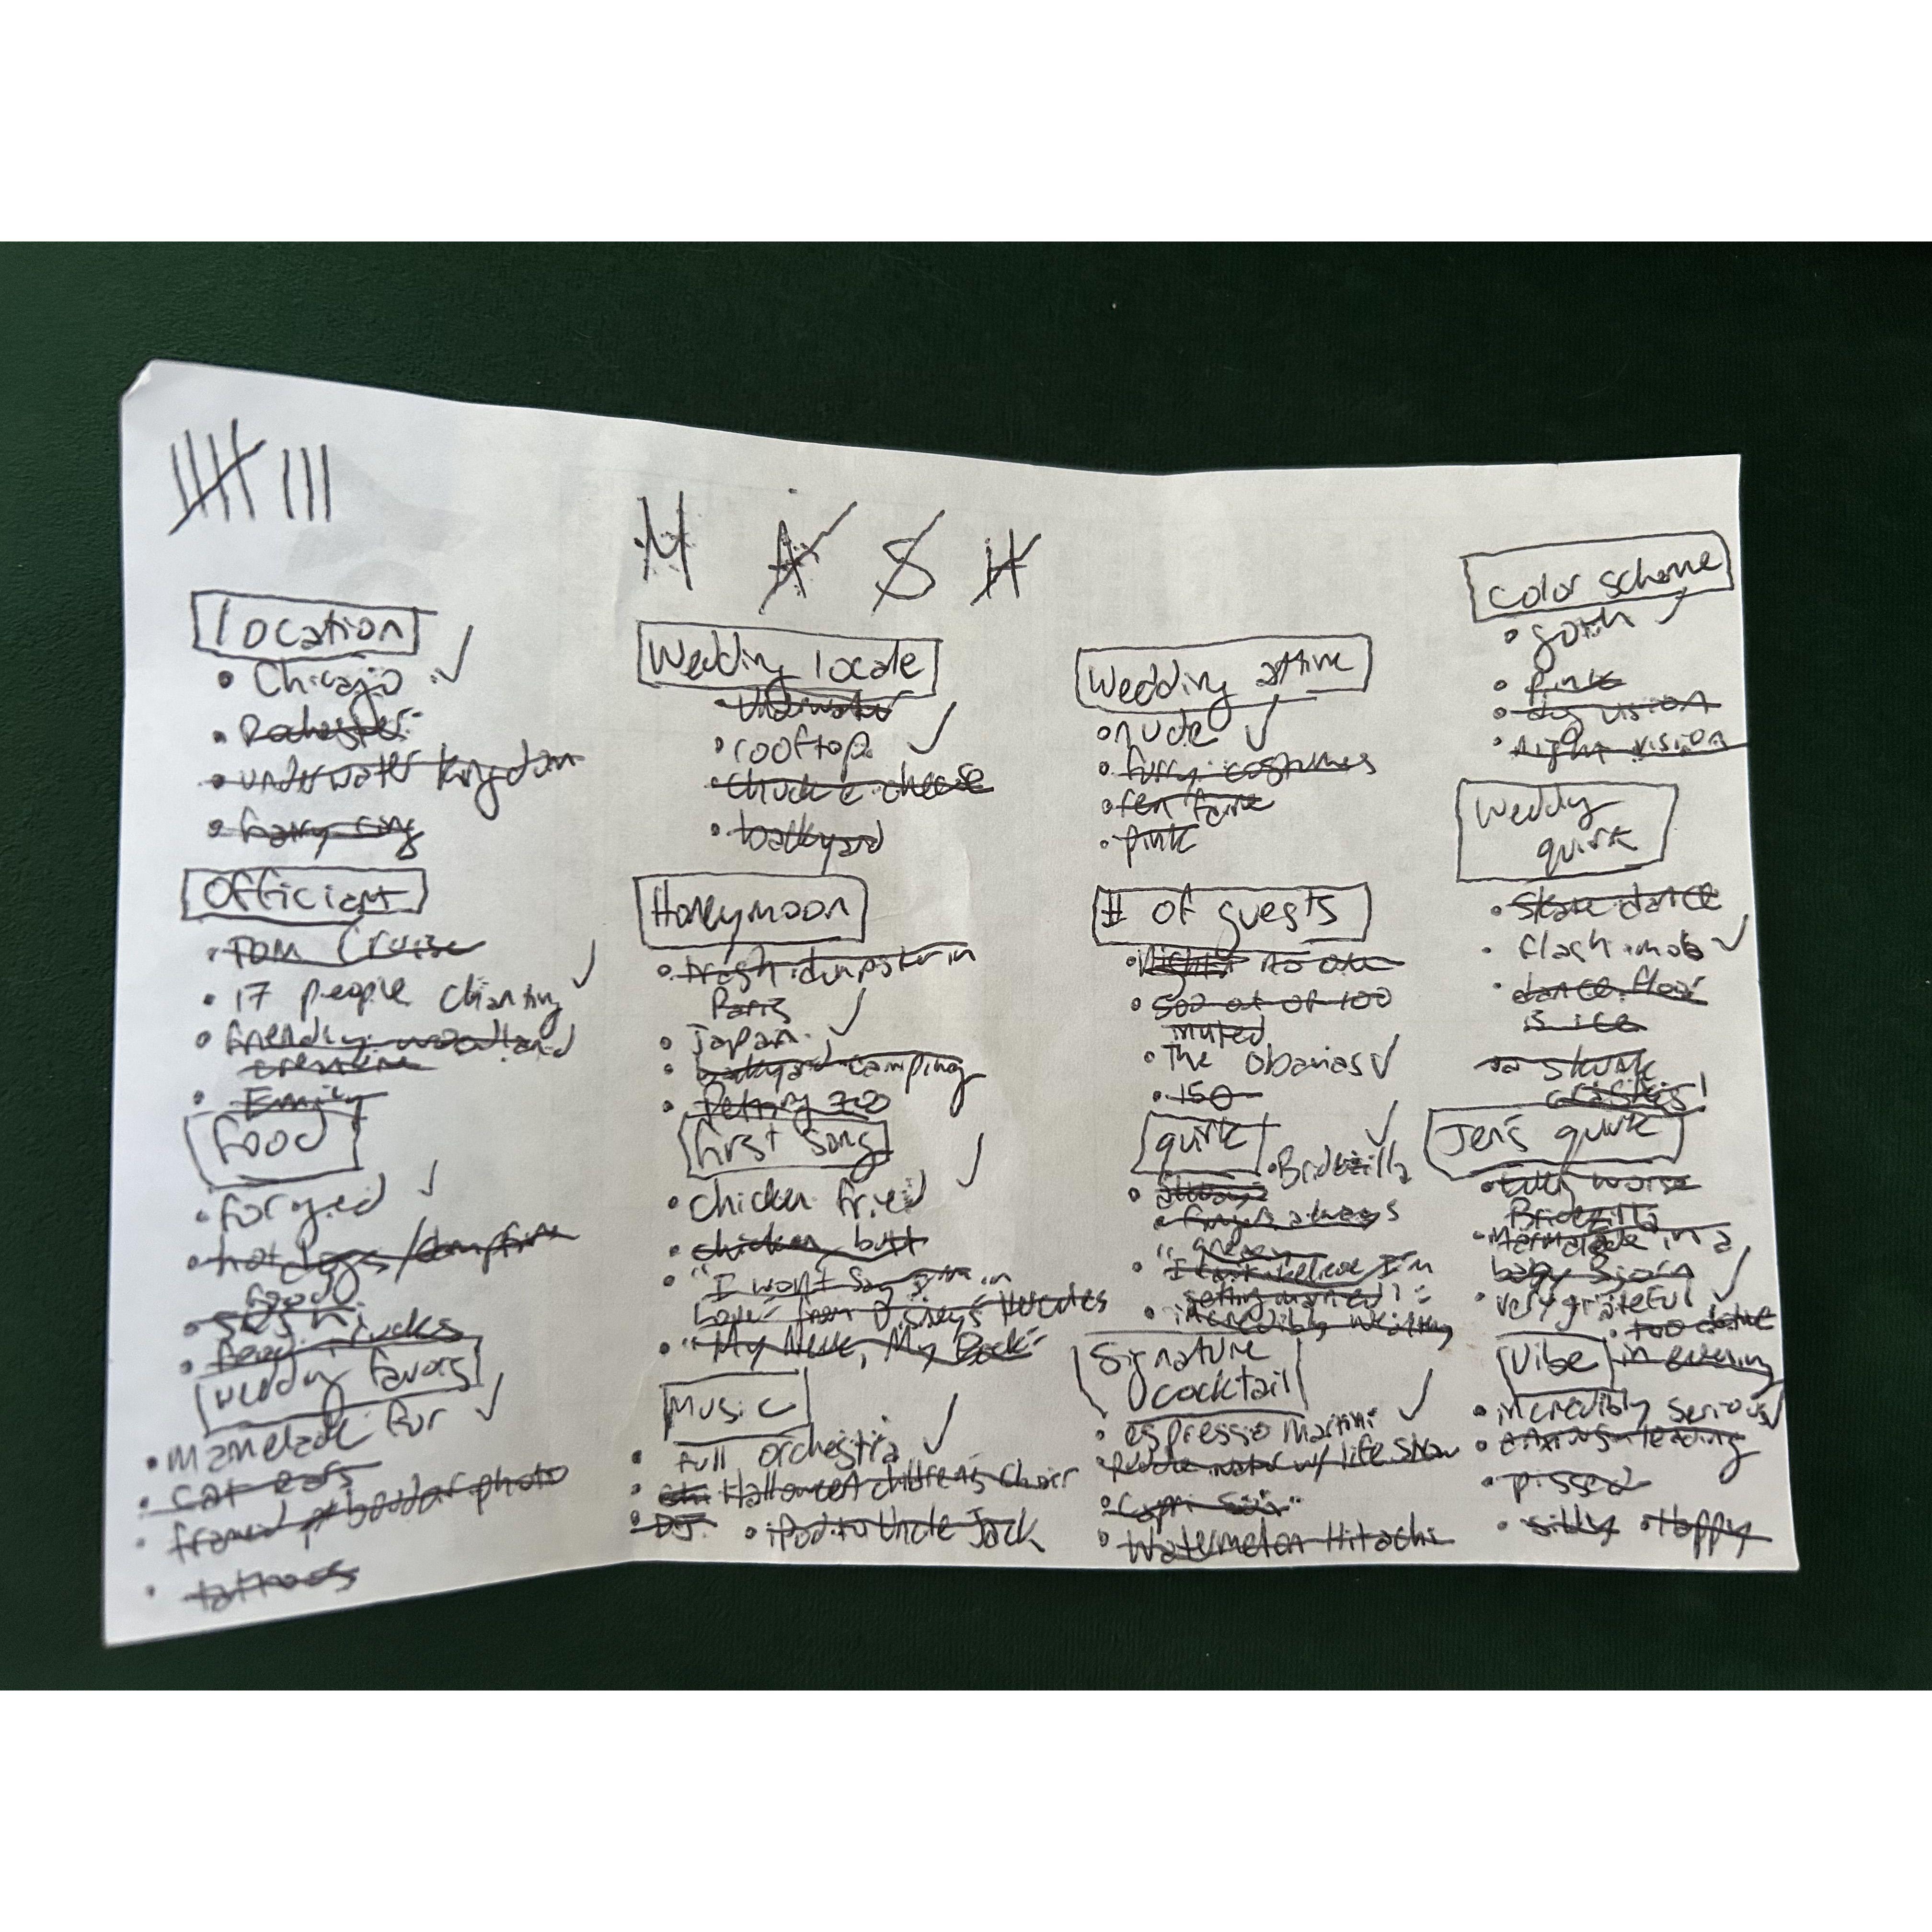 M A S H
Location
• Chicago
• Rochester
• underwater kingdom
• fairy ring
Officiant
• Tom Cruise
• 17 people chanting
• friendly woodland
creature
• Emily
Food
• foraged
• hot dogs / campfire
food
• sushi
• food trucks
Wedding favors
• Mamelade fur
• cat ears
• framed boudoir photo
• tattoos
Wedding locale
• Underwater
• rooftop
• chuck e cheese
• backyard
Honeymoon
• trash dumpster in
Paris
• Japan
• backyard camping
• Petting zoo
First song
• chicken fried
• chicken butt
• "I won't say I'm in
Love" from Disney's Hercules
• "My Neck, My Back"
Music
• Full orchestra
• Halloween children's choir
• DJ • iPod to Uncle Jack
Wedding attire
• nude
• furry costumes
• ren faire
• pink
# of guests
• 500 out of 100
invited
• The Obamas
• 150
quirk
• Bridezilla
• always
• fingers always
greasy
• "I can't believe I'm
getting married!"
• incredibly
Signature
cocktail
• espresso martini
• water w/ life straw
• Capri Sun
• Watermelon Hitachi
Color scheme
• goth
• pink
• dog vision
• night vision
Wedding
quirk
• skate dance
• flash mob
• dance floor
is ice
• skunk
crashes!
Jen's quirk
• even worse
Bridezilla
• Marmalade in a
baby Bjorn
• very grateful
• too
in evening
Vibe
• incredibly serious
• anxiously leading
• pissed
• silly • Happy